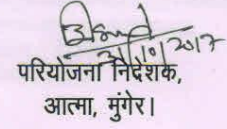 31/10/2017
परियोजना निदेशक,
आत्मा, मुंगेर।